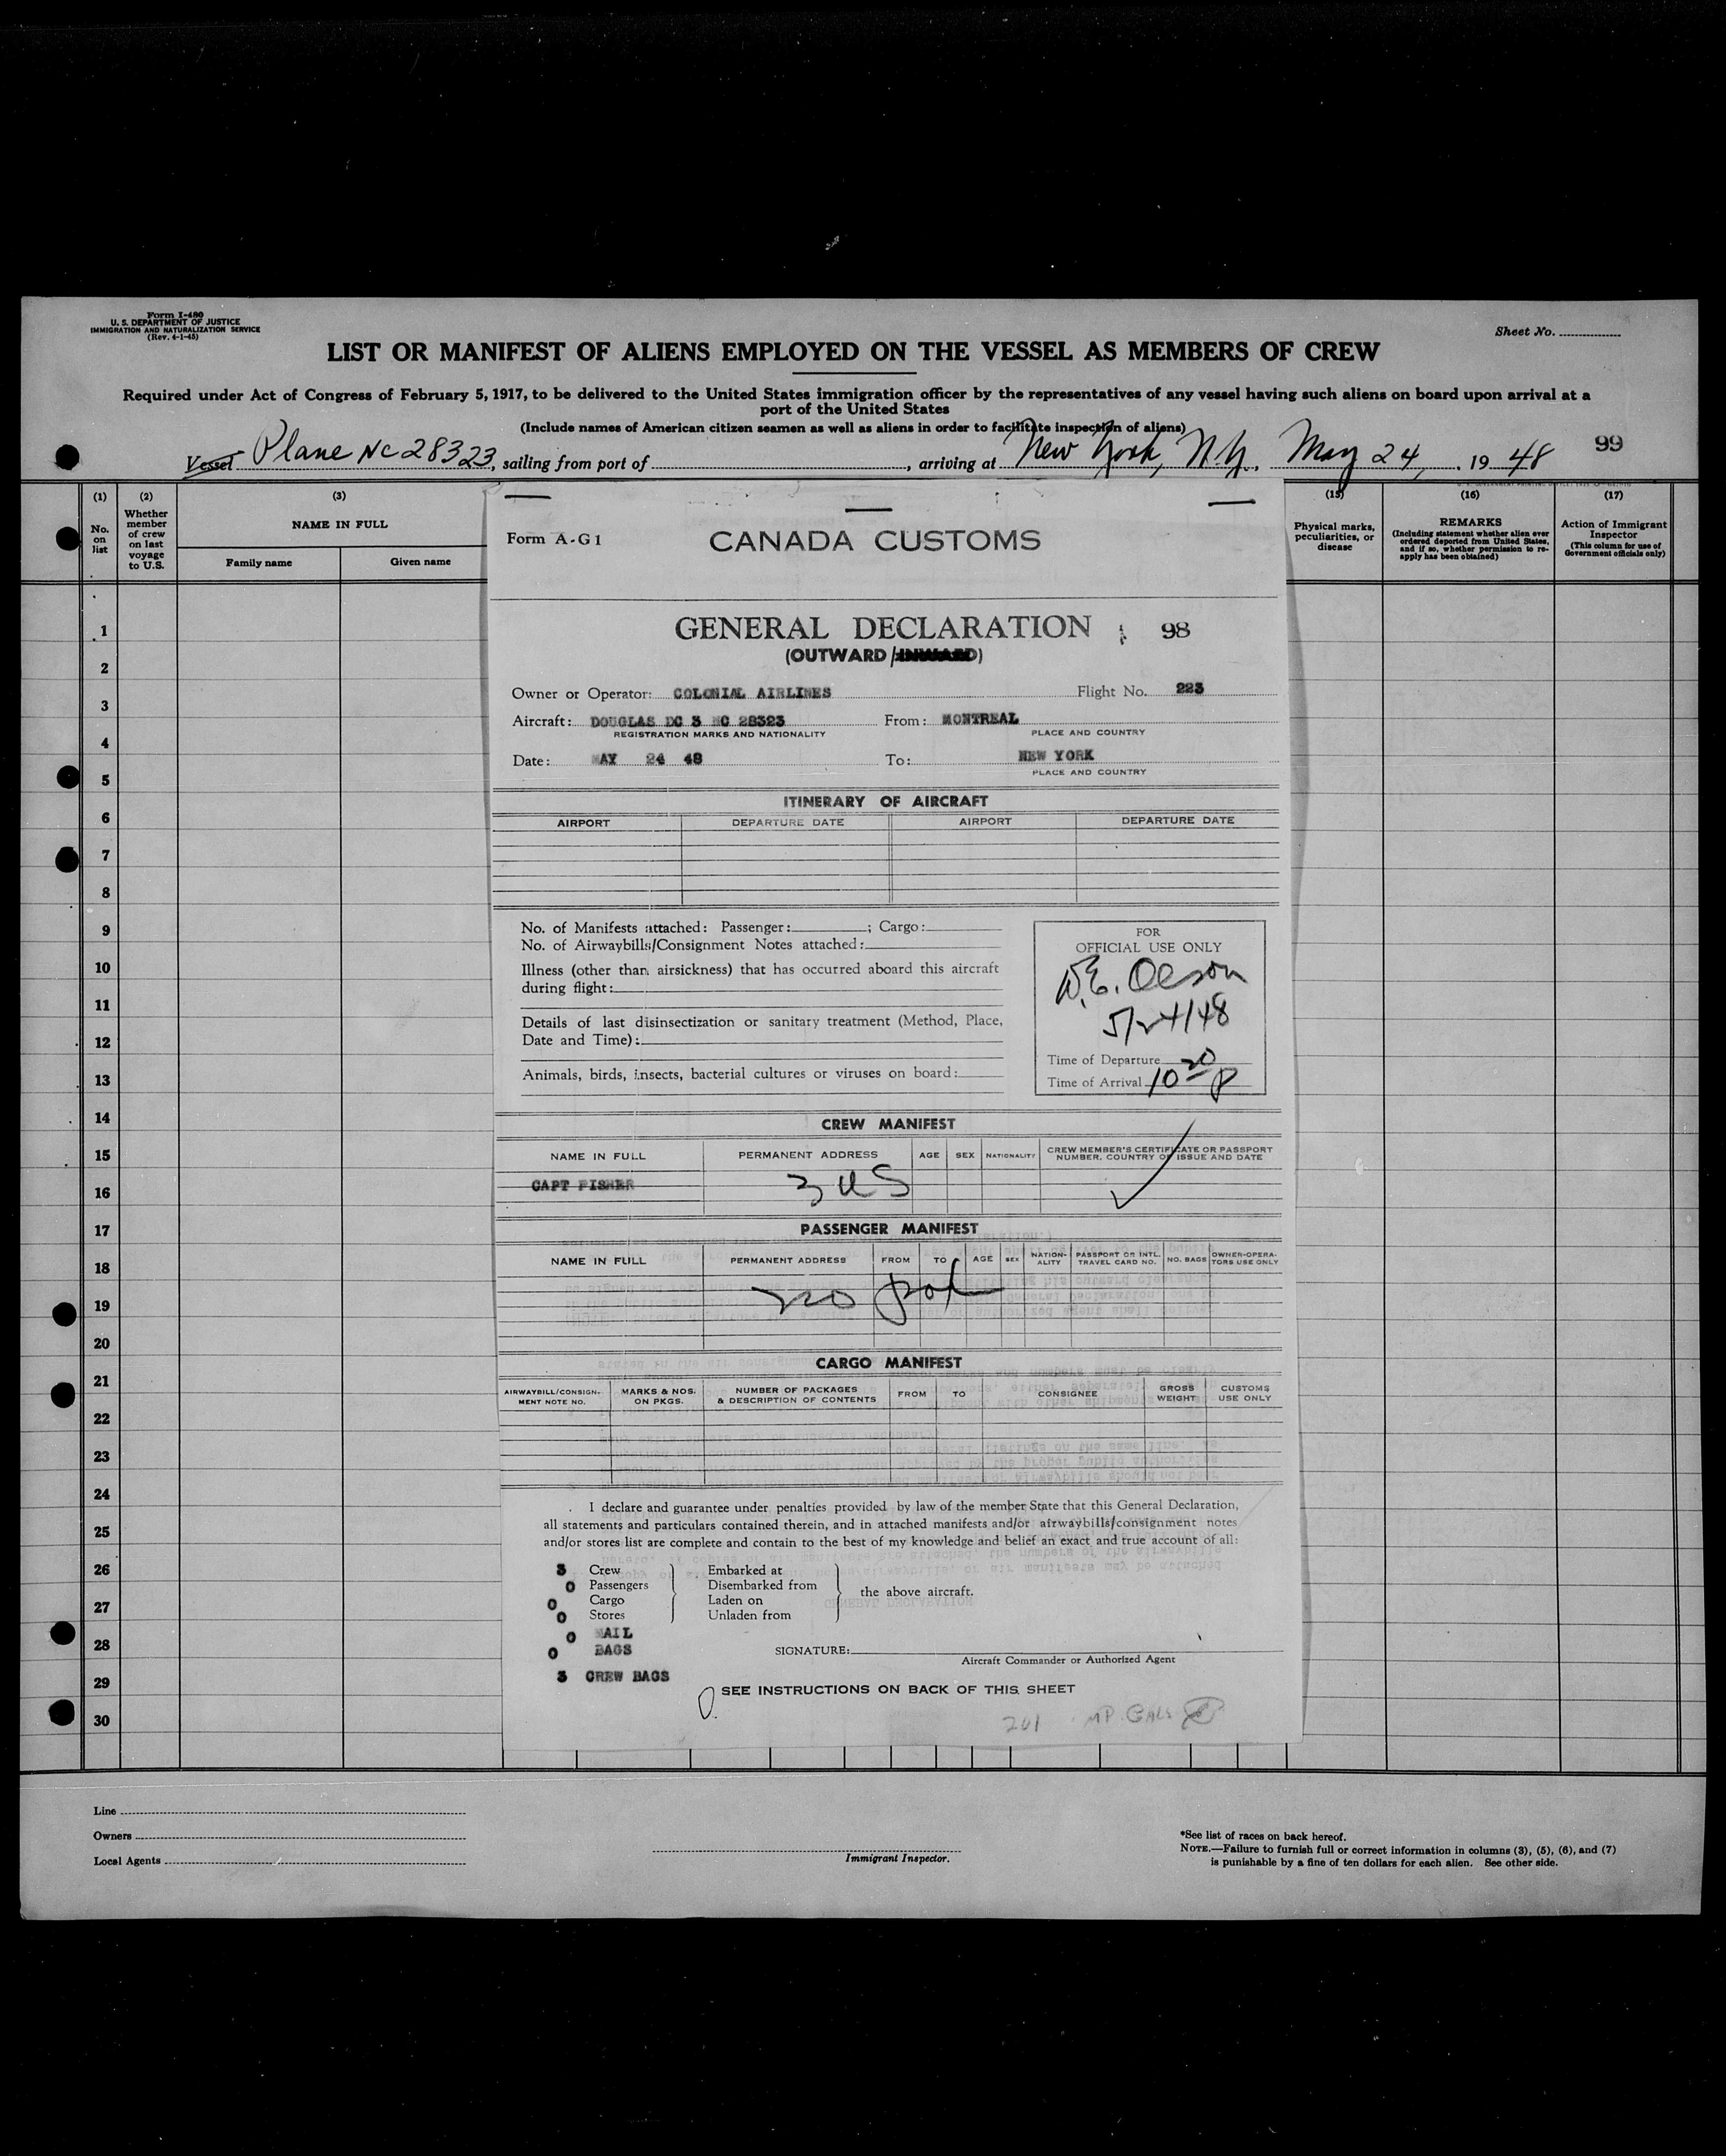 Form I-480
U. S. DEPARTMENT OF JUSTICE
IMMIGRATION AND NATURALIZATION SERVICE
(Rev. 4-1-45)
Sheet No.
LIST OR MANIFEST OF ALIENS EMPLOYED ON THE VESSEL AS MEMBERS OF CREW
Required under Act of Congress of February 5, 1917, to be delivered to the United States immigration officer by the representatives of any vessel having such aliens on board upon arrival at a
port of the United States
(Include names of American citizen seamen as well as aliens in order to facilitate inspection of aliens)
99
Vessel Plane NC 28323, sailing from port of , arriving at New York, N.Y., May 24, 1948
(1) No. on list
(2) Whether member of crew on last voyage to U.S.
(3) NAME IN FULL
Family name Given name
(15) Physical marks, peculiarities, or disease
(16) REMARKS (Including statement whether alien ever ordered deported from United States, and if so, whether permission to re-apply has been obtained)
(17) Action of Immigrant Inspector (This column for use of Government officials only)
1
2
3
4
5
6
7
8
9
10
11
12
13
14
15
16
17
18
19
20
21
22
23
24
25
26
27
28
29
30
Form A-G1
CANADA CUSTOMS
GENERAL DECLARATION 98
(OUTWARD/INWARD)
Owner or Operator: COLONIAL AIRLINES Flight No. 223
Aircraft: DOUGLAS DC 3 NC 28323 From: MONTREAL
REGISTRATION MARKS AND NATIONALITY PLACE AND COUNTRY
Date: MAY 24 48 To: NEW YORK
PLACE AND COUNTRY
ITINERARY OF AIRCRAFT
AIRPORT DEPARTURE DATE AIRPORT DEPARTURE DATE
No. of Manifests attached: Passenger: ; Cargo:
No. of Airwaybills/Consignment Notes attached:
Illness (other than airsickness) that has occurred aboard this aircraft
during flight:
Details of last disinsectization or sanitary treatment (Method, Place,
Date and Time):
Animals, birds, insects, bacterial cultures or viruses on board:
FOR
OFFICIAL USE ONLY
W.E. Olson
5/24/48
Time of Departure
Time of Arrival 10 20 P
CREW MANIFEST
NAME IN FULL PERMANENT ADDRESS AGE SEX NATIONALITY CREW MEMBER'S CERTIFICATE OR PASSPORT NUMBER. COUNTRY OF ISSUE AND DATE
CAPT FISHER 3 US
PASSENGER MANIFEST
NAME IN FULL PERMANENT ADDRESS FROM TO AGE SEX NATION-ALITY PASSPORT OR INTL. TRAVEL CARD NO. NO. BAGS OWNER-OPERA-TORS USE ONLY
no
CARGO MANIFEST
AIRWAYBILL/CONSIGN-MENT NOTE NO. MARKS & NOS. ON PKGS. NUMBER OF PACKAGES & DESCRIPTION OF CONTENTS FROM TO CONSIGNEE GROSS WEIGHT CUSTOMS USE ONLY
I declare and guarantee under penalties provided by law of the member State that this General Declaration,
all statements and particulars contained therein, and in attached manifests and/or airwaybills/consignment notes
and/or stores list are complete and contain to the best of my knowledge and belief an exact and true account of all:
3 Crew Embarked at
0 Passengers Disembarked from the above aircraft.
0 Cargo Laden on
0 Stores Unladen from
0 MAIL
0 BAGS
3 CREW BAGS
SIGNATURE:
Aircraft Commander or Authorized Agent
SEE INSTRUCTIONS ON BACK OF THIS SHEET
Line
Owners
Local Agents
Immigrant Inspector.
*See list of races on back hereof.
NOTE.—Failure to furnish full or correct information in columns (3), (5), (6), and (7)
is punishable by a fine of ten dollars for each alien. See other side.